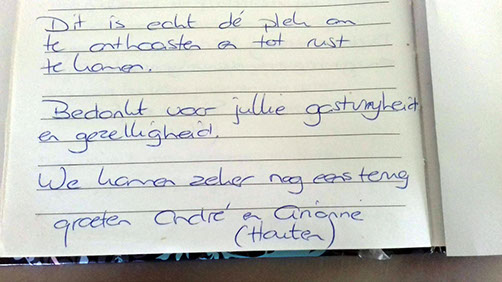 Dit is echt dé plek om
te onthaasten en tot rust
te komen.
Bedankt voor jullie gastvrijheid
en gezelligheid.
We komen zeker nog eens terug
groeten André en
(Houten)